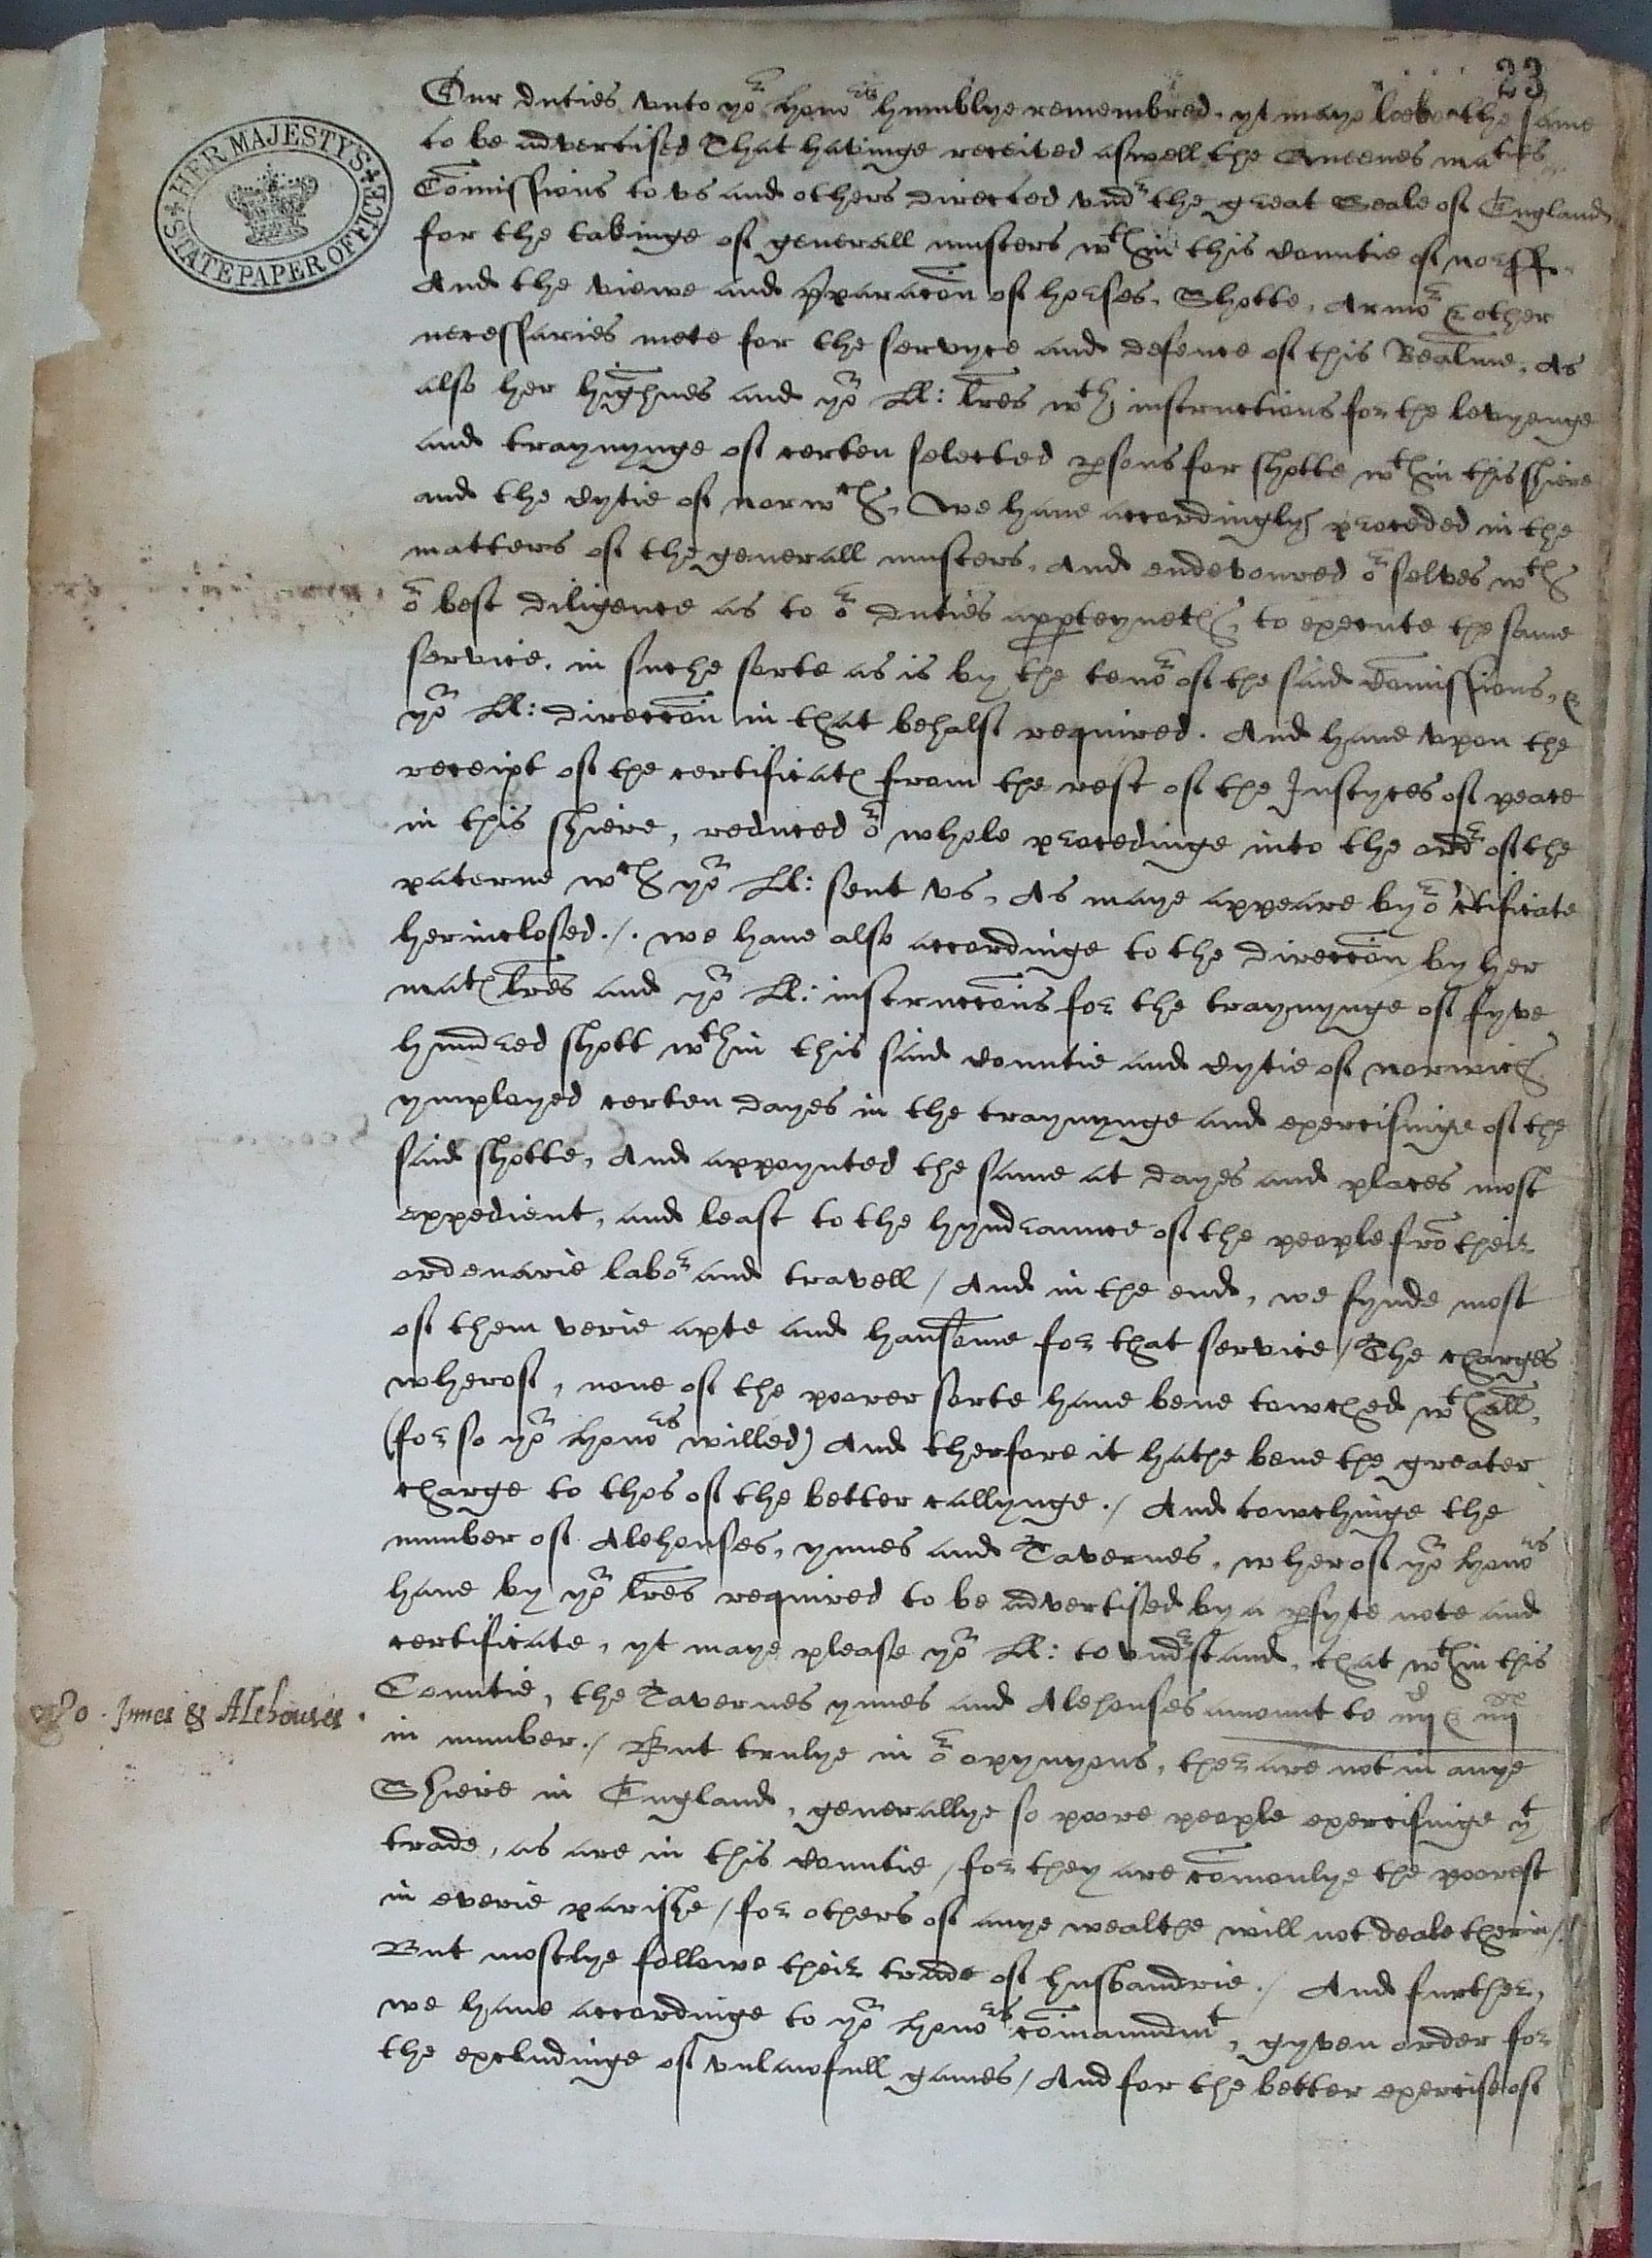 23
HER MAJESTY'S
STATE PAPER OFFICE
Our duties vnto yor honors humblye remembred. yt maye the same
to be advertised That havinge received aswell the Queenes maties
Comissions to vs and others directed vndr the great Seale of England
for the takinge of generall musters wthin this Countie of norff.
And the viewe and pparacon of horses, Shotte, Armor & other
necessaries mete for the servyce and defence of this Realme, As
also her highnes and yor LL: lres wth instructions for the levyenge
and traynynge of certen selected psons for shotte wthin this shiere
and the Cytie of norwch, We haue accordingly proceded in the
matters of the generall musters, And endevoured or selves wth
or best diligence as to or duties appteyneth, to execute the same
service, in suche sorte as is by the tenor of the said Comissions, &
yor LL: direccon in that behalf required. And haue vpon the
receipt of the certificats from the rest of the Justyces of peace
in this shiere, reduced or whole procedinge into the ordr of the
paterne wch yor LL: sent vs, As maye appeare by or ctificate
herinclosed./. we haue also accordinge to the direccon by her
mats lres and yor LL: instruccons for the traynynge of fyve
hundred shott wthin this said Countie and Cytie of norwich
ymployed certen dayes in the traynynge and exercisinge of the
said shotte, And appoynted the same at dayes and places most
expedient, and least to the hyndraunce of the people fro their
ordenarie labor and travell / And in the end, we fynde most
of them verie apte and hansome for that service / The charges
wherof, none of the poorer sorte haue bene towched wthall,
(for so yor honors willed) And therfore it hathe bene the greater
charge to thos of the better callynge./ And towchinge the
number of Alehouses, ynnes and Tavernes, wherof yor honors
haue by yor lres required to be advertised by a pfyte note and
certificate, yt maye please yor LL: to vndrstand, that wthin this
Countie, the Tavernes ynnes and Alehouses amount to iiijC iiijxx
480. Innes & Alehouses.
in number./ But trulye in or opynyons, ther are not in anye
Shiere in England, generallye so poore people exercisinge yt
trade, as are in this Countie / for they are comonlye the poorest
in everie parishe / for others of anye wealthe will not deale therin /.
But mostlye followe their trade of husbandrie./ And further,
we haue accordinge to yor honors comaundmt, gyven order for
the excludinge of vnlawfull games / And for the better exercise of